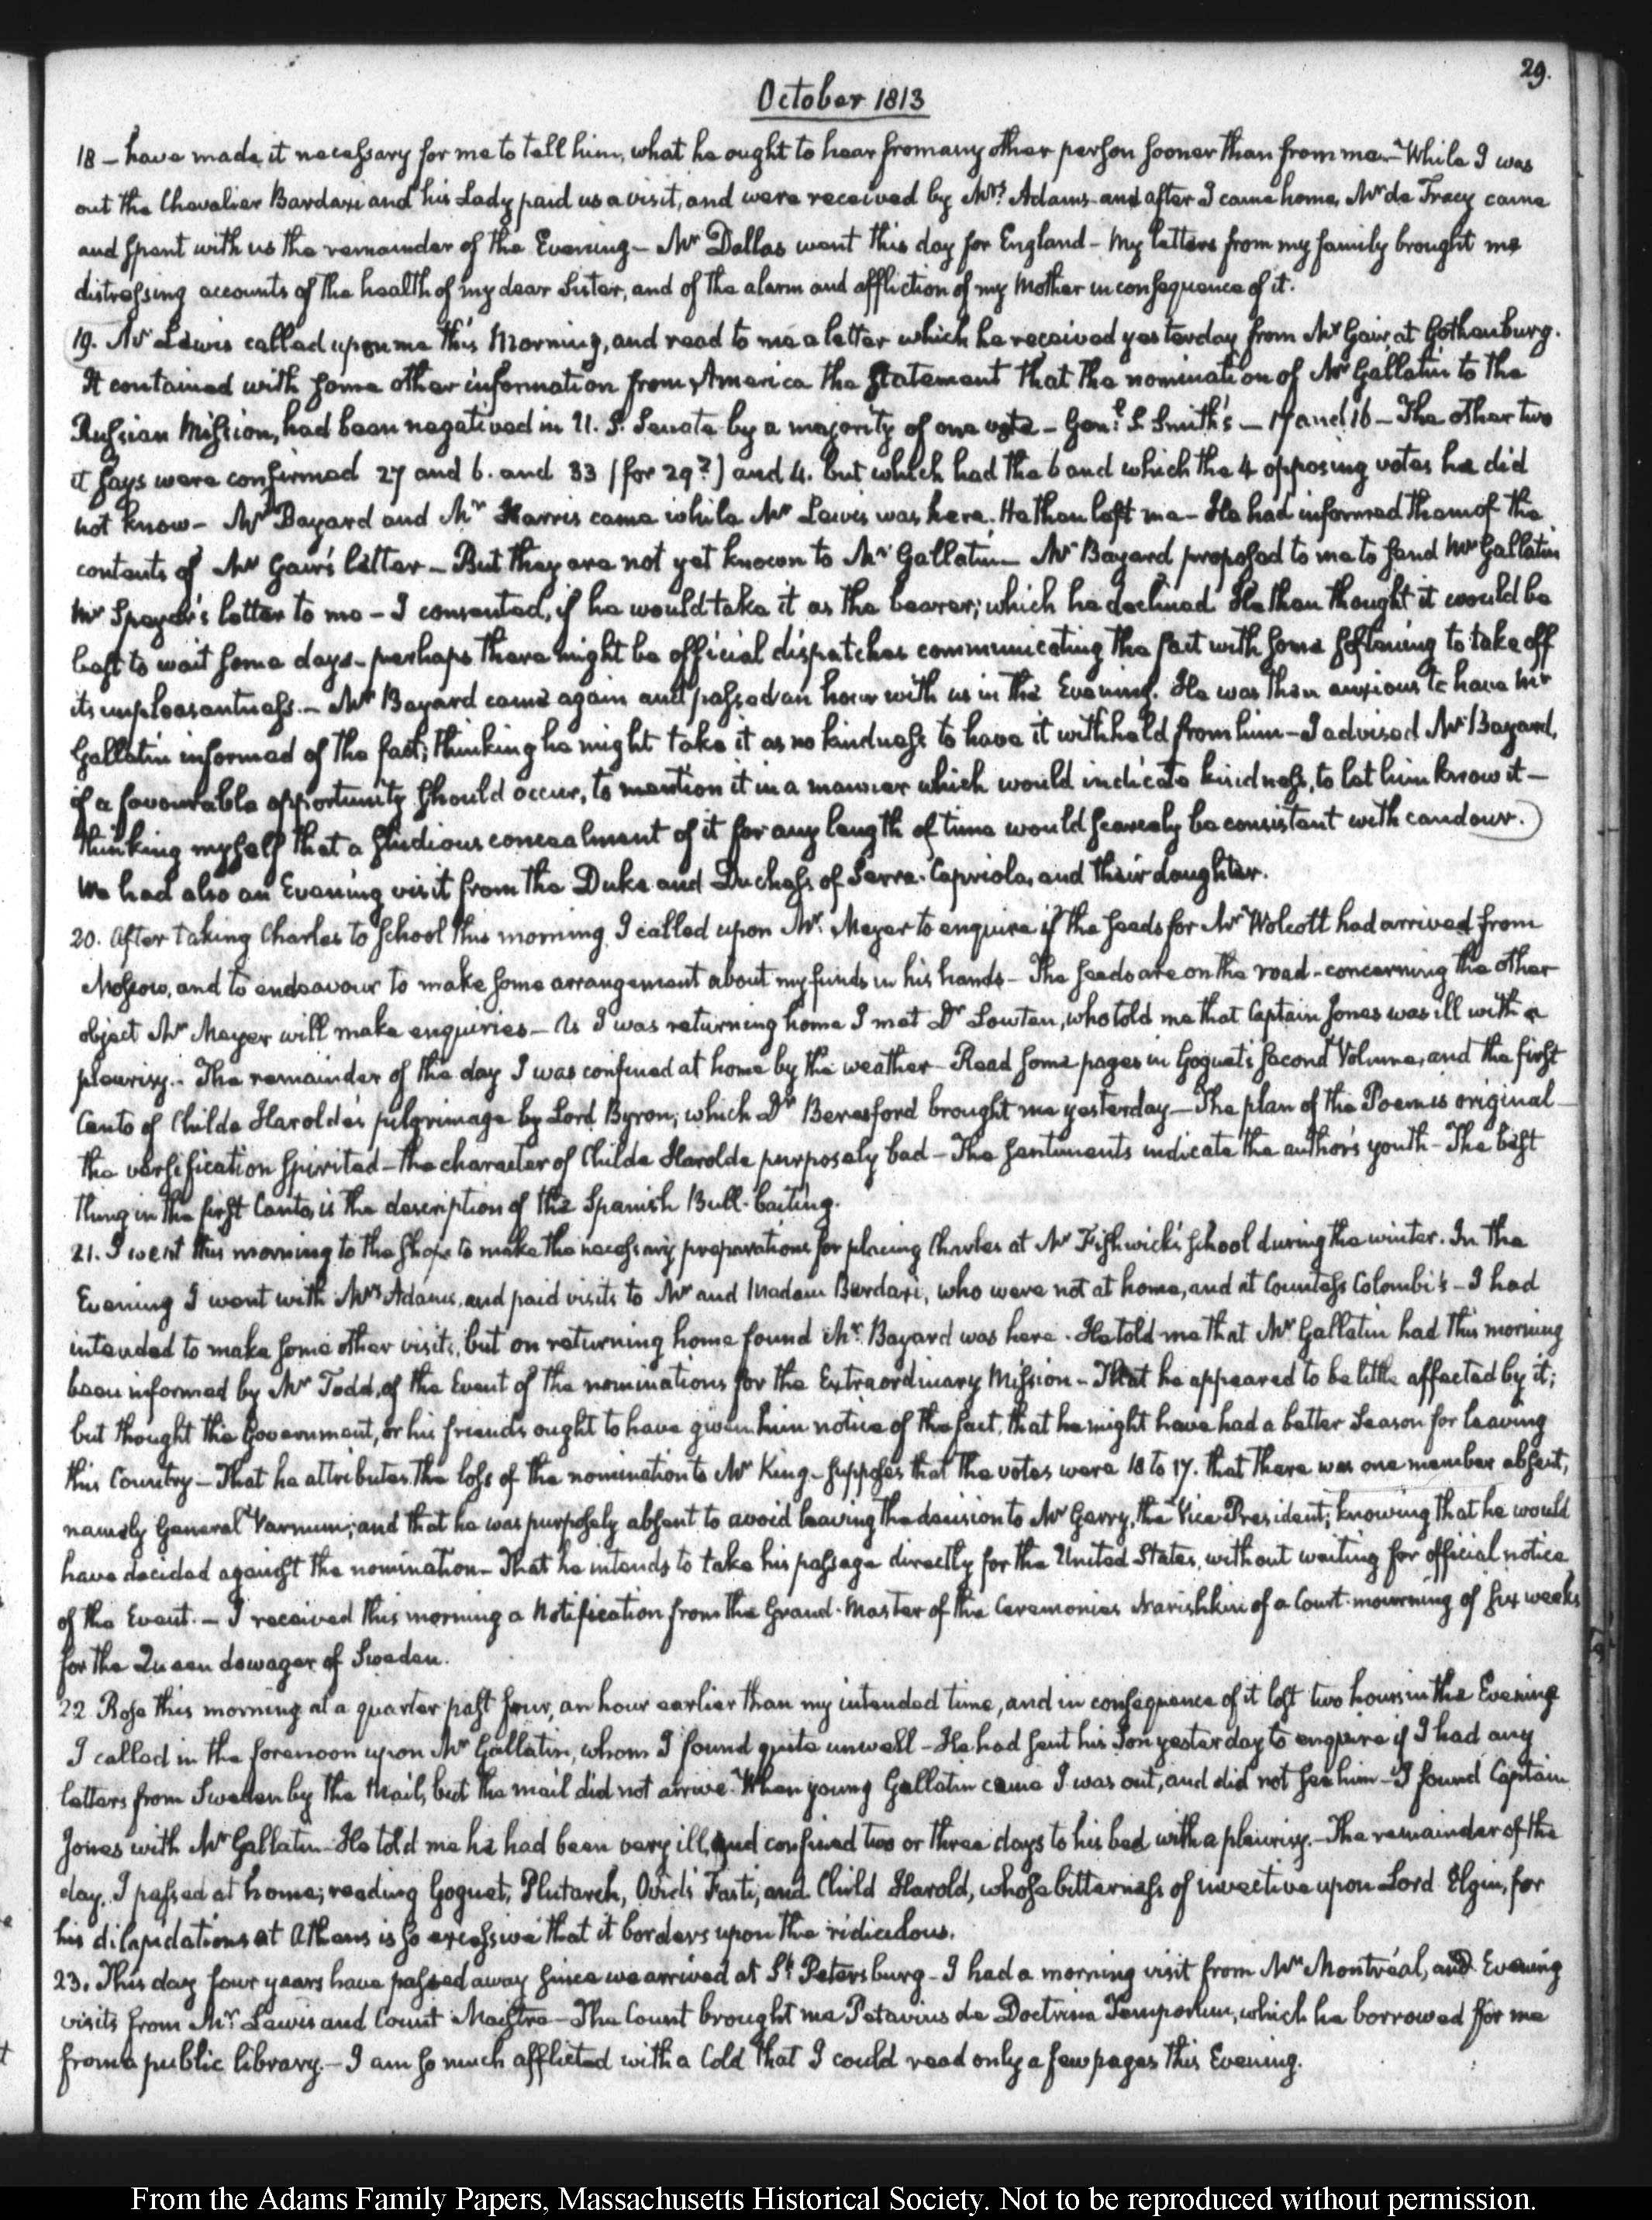 29.
October 1813
18 – have made it necessary for me to tell him, what he ought to hear from any other person sooner than from me – While I was
out the Chevalier Bardaxi and his Lady paid us a visit, and were received by Mrs. Adams – and after I came home, Mr de Tracy came
and spent with us the remainder of the Evening – Mr Dallas went this day for England – My letters from my family brought me
distressing accounts of the health of my dear Sister, and of the alarm and affliction of my Mother in consequence of it.
19. Mr Lewis called upon me this Morning, and read to me a letter which he received yesterday from Mr Gair, at Gothenburg.
It contained with some other information from America the statement that the nomination of Mr Gallatin to the
Russian Mission, had been negatived in U. S. Senate by a majority of one vote – Genl. S. Smith's – 17 and 16 – The other two
it says were confirmed 27 and 6. and 33 (for 29?) and 4. but which had the 6 and which the 4 opposing votes he did
not know – Mr Bayard and Mr Harris came while Mr Lewis was here. He then left me – He had informed them of the
contents of Mr Gair's letter – But they are not yet known to Mr Gallatin – Mr Bayard proposed to me to send Mr Gallatin
Mr Speyer's letter to me – I consented, if he would take it as the bearer; which he declined. He then thought it would be
best to wait some days – perhaps there might be official dispatches communicating the fact with some softening to take off
its unpleasantness. – Mr Bayard came again and passed an hour with us in the Evening. He was then anxious to have Mr
Gallatin informed of the fact; thinking he might take it as no kindness to have it withheld from him – I advised Mr Bayard,
if a favourable opportunity should occur, to mention it in a manner which would indicate kindness, to let him know it –
thinking myself that a studious concealment of it for any length of time would scarcely be consistent with candour.)
We had also an Evening visit from the Duke and Duchess of Serra-Capriola, and their daughter.
20. After taking Charles to School this morning I called upon Mr. Meyer to enquire if the seeds for Mr Wolcott had arrived from
Moscow, and to endeavour to make some arrangement about my funds in his hands – The seeds are on the road – concerning the other
object Mr Meyer will make enquiries – As I was returning home I met Dr Lowten, who told me that Captain Jones was ill with a
pleurisy. – The remainder of the day I was confined at home by the weather – Read some pages in Goguet's second Volume, and the first
Canto of Childe Harolde's pilgrimage by Lord Byron; which Dr Beresford brought me yesterday – The plan of the Poem is original –
the versification spirited – the character of Childe Harolde purposely bad – The sentiments indicate the author's youth – The best
thing in the first Canto, is the description of the Spanish Bull-baiting.
21. I went this morning to the shops to make the necessary preparations for placing Charles at Mr Fishwick's school during the winter. In the
Evening I went with Mrs Adams, and paid visits to Mr and Madam Bardaxi, who were not at home, and at Countess Colombi's – I had
intended to make some other visits, but on returning home found Mr. Bayard was here. He told me that Mr Gallatin had this morning
been informed by Mr Todd, of the Event of the nominations for the Extraordinary Mission – That he appeared to be little affected by it;
but thought the Government, or his friends ought to have given him notice of the fact, that he might have had a better season for leaving
this Country – That he attributes the loss of the nomination to Mr King – supposes that the votes were 18 to 17. that there was one member absent,
namely General Varnum; and that he was purposely absent to avoid leaving the decision to Mr Gerry, the Vice President; knowing that he would
have decided against the nomination – That he intends to take his passage directly for the United States, without waiting for official notice
of the Event. – I received this morning a Notification from the Grand-Master of the Ceremonies Narishkin of a Court-mourning of six weeks
for the Queen dowager of Sweden.
22 Rose this morning at a quarter past four, an hour earlier than my intended time, and in consequence of it lost two hours in the Evening
I called in the forenoon upon Mr Gallatin, whom I found quite unwell – He had sent his Son yesterday to enquire if I had any
letters from Sweden by the Mail, but the mail did not arrive. When young Gallatin came I was out, and did not see him – I found Captain
Jones with Mr Gallatin – He told me he had been very ill, and confined two or three days to his bed with a pleurisy. – The remainder of the
day, I passed at home; reading Goguet, Plutarch, Ovid's Fasti, and Child Harold, whose bitterness of invective upon Lord Elgin, for
his dilapidations at Athens is so excessive that it borders upon the ridiculous.
23. This day four years have passed away since we arrived at St Petersburg – I had a morning visit from Mr Montréal, and Evening
visits from Mr. Lewis and Count Maistre – The Count brought me Petavius de Doctrina Temporum, which he borrowed for me
from a public library. – I am so much afflicted with a Cold that I could read only a few pages this Evening.
From the Adams Family Papers, Massachusetts Historical Society. Not to be reproduced without permission.